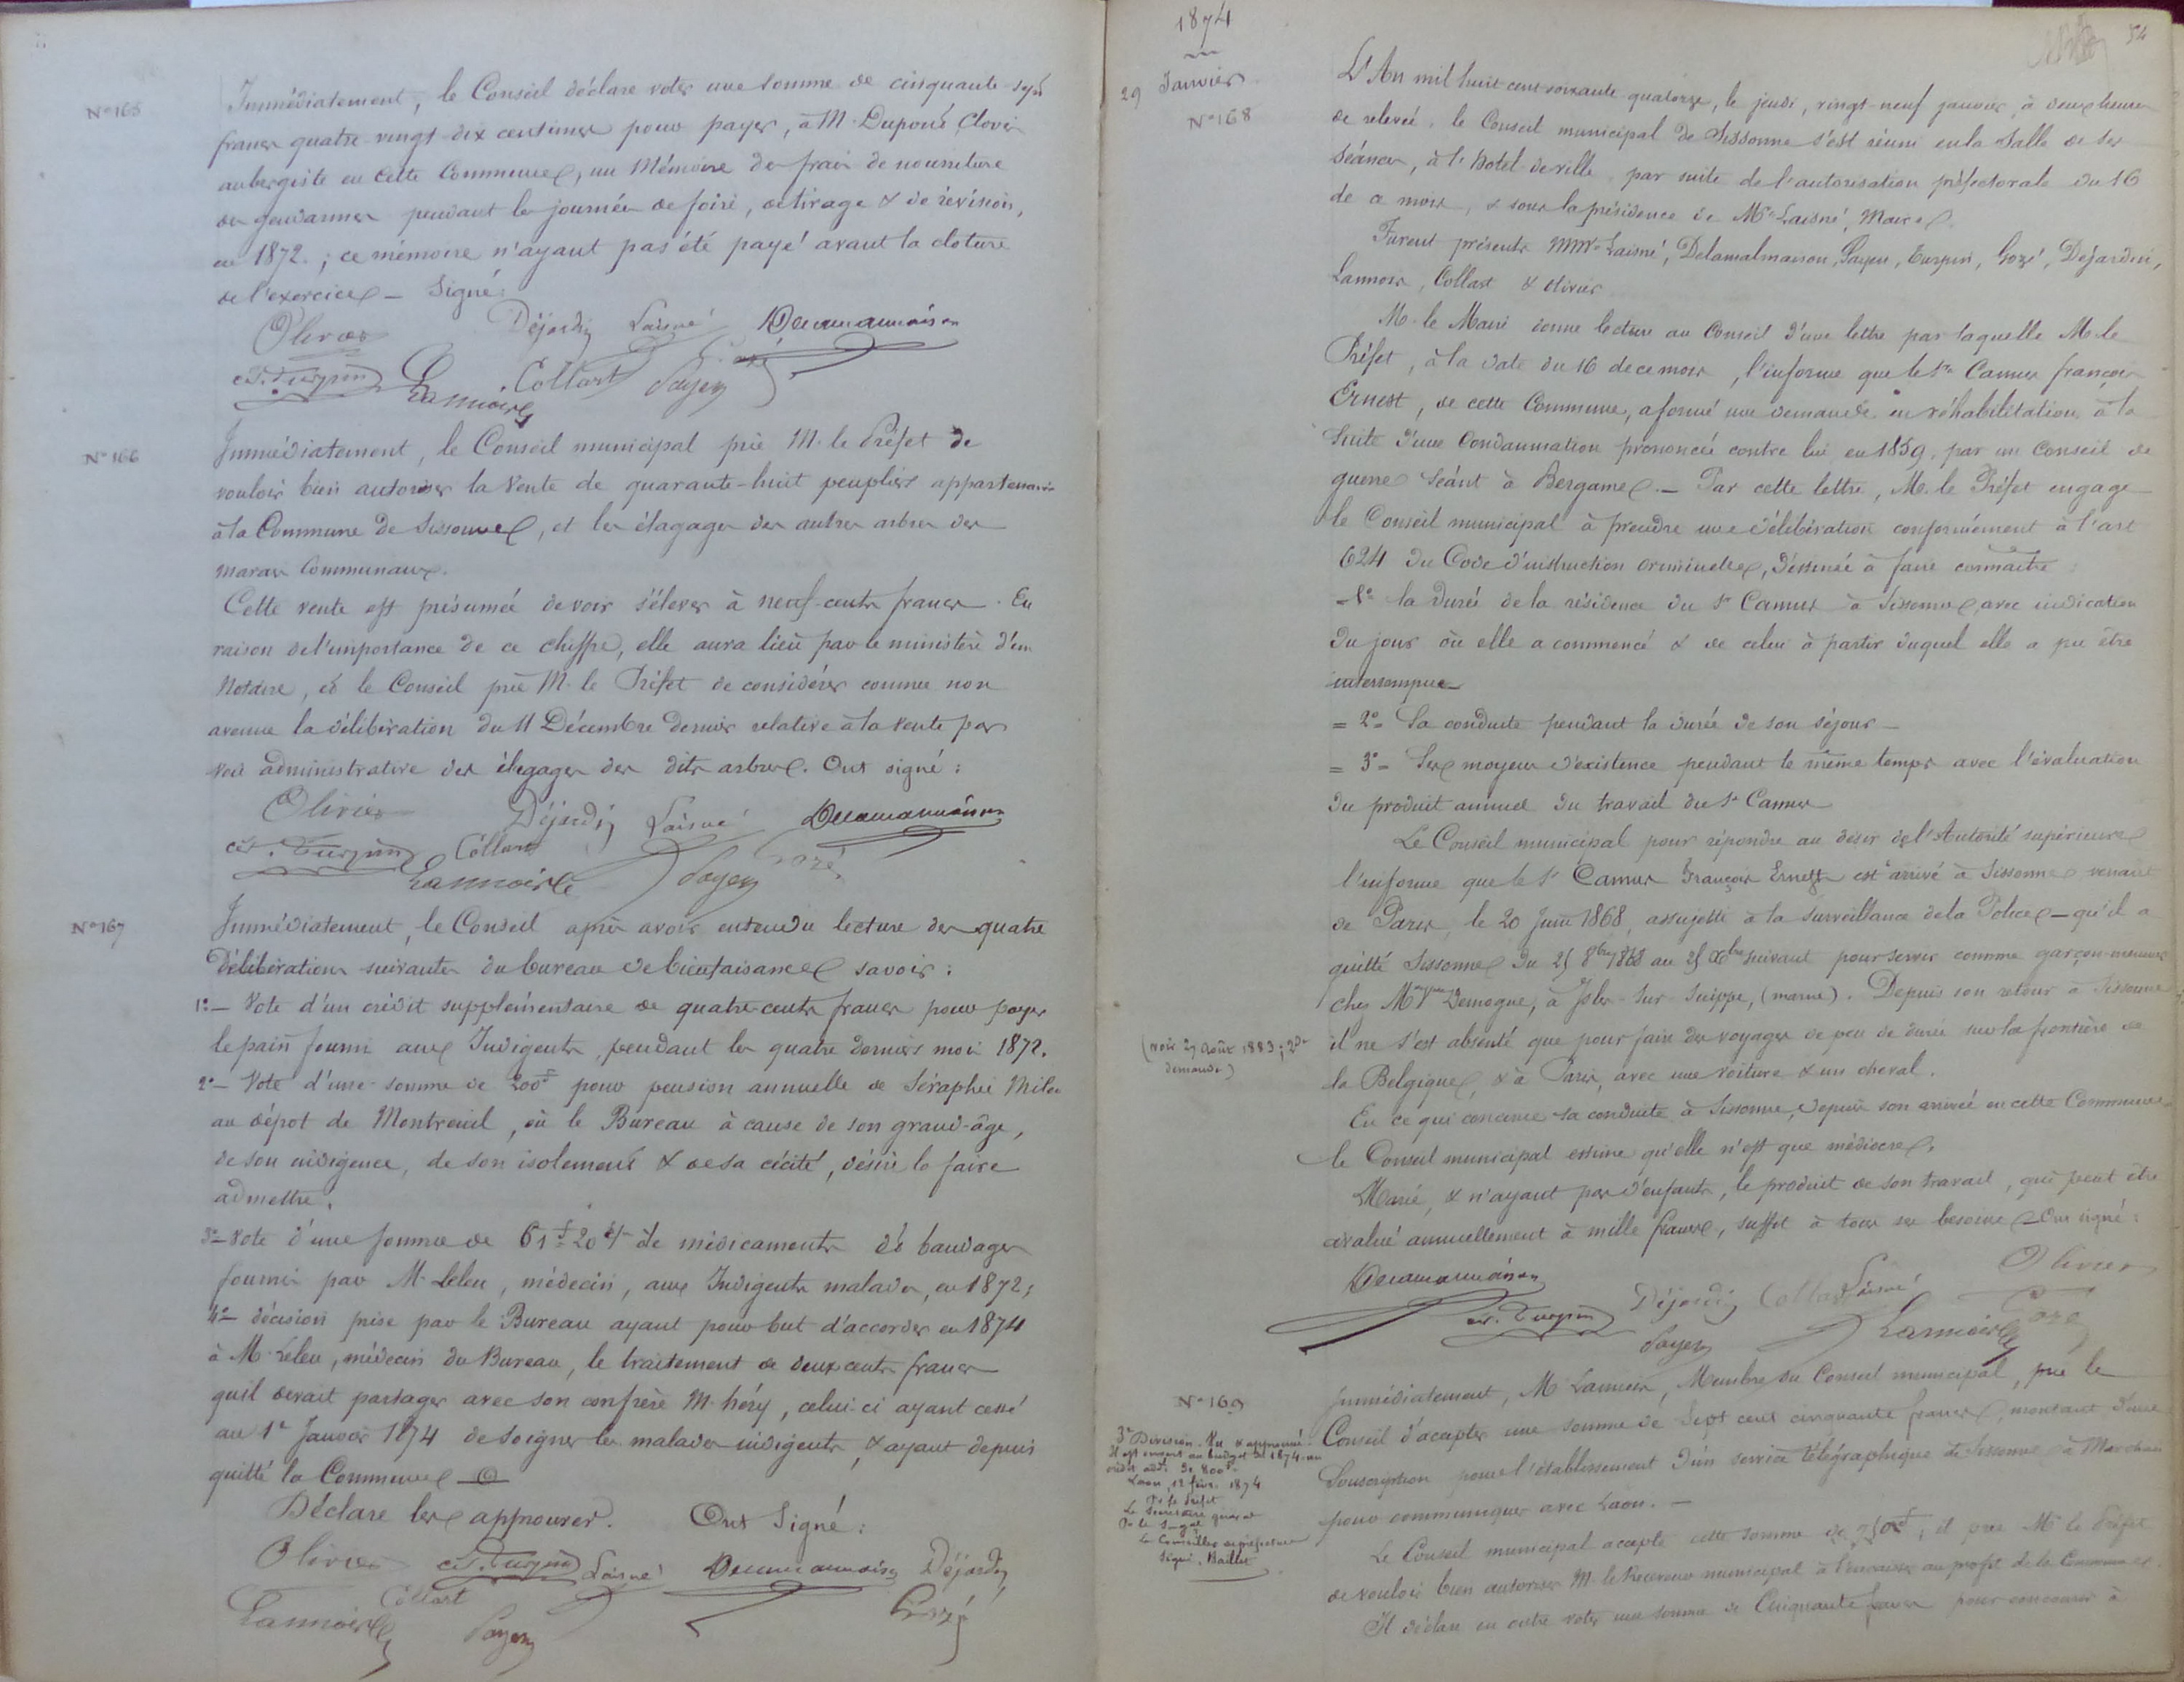 N° 165
Immédiatement, le Conseil déclare voter une somme de cinquante-sept
francs quatre-vingt-dix centimes pour payer, à M. Dupont Clovis
aubergiste en cette Commune, un Mémoire de frais de nourriture
des gendarmes pendant les journées de foire, de tirage & de révision,
en 1872. ; ce mémoire n'ayant pas été payé avant la cloture
de l'exercice — Signé :
Olivier Déjardin Laisné Delamalmaison
Ct. Turpin Lannois Collart Payen Gozé
N° 166
Immédiatement, le Conseil municipal prie M. le Préfet de
vouloir bien autoriser la vente de quarante-huit peupliers appartenant
à la Commune de Sissonne, et les élagages des autres arbres des
marais communaux.
Cette vente est présumée devoir s'élever à neuf-cents francs. En
raison de l'importance de ce chiffre, elle aura lieu par le ministère d'un
Notaire, et le Conseil prie M. le Préfet de considérer comme non
avenue la délibération du 11 Décembre dernier relative à la vente par
voie administrative des élagages des dits arbres. Ont signé :
Olivier Déjardin Laisné Delamalmaison
Ct. Turpin Collart Lannois Payen Gozé
N° 167
Immédiatement, le Conseil après avoir entendu lecture des quatre
Délibérations suivantes du bureau de bienfaisance savoir :
1°— Vote d'un crédit supplémentaire de quatre cents francs pour payer
le pain fourni aux Indigents, pendant les quatre derniers mois 1872.
2°— Vote d'une somme de 200f pour pension annuelle de Séraphie
au dépôt de Montreuil, où le Bureau à cause de son grand-âge,
de son indigence, de son isolement & de sa cécité, désire la faire
admettre.
3°— Vote d'une somme de 61f 20c de médicaments et bandages
fournis par M. Leleu, médecin, aux Indigents malades, en 1872 ;
4°— décision prise par le Bureau ayant pour but d'accorder en 1874
à M. Leleu, médecin du Bureau, le traitement de deux cents francs
qu'il devait partager avec son confrère M. héry, celui-ci ayant cessé
au 1er Janvier 1874 de soigner les malades indigents, & ayant depuis
quitté la Commune —
Déclare les approuver. Ont Signé :
Olivier Ct. Turpin Laisné Delamalmaison Déjardin
Lannois Collart Payen Gozé
54
1874
29 Janvier
N° 168
L'An mil huit cent soixante quatorze, le jeudi, vingt-neuf janvier, à deux heures
de relevée, le Conseil municipal de Sissonne s'est réuni en la Salle de ses
séances, à l'hôtel de ville, par suite de l'autorisation préfectorale du 16
de ce mois, & sous la présidence de Mr Laisné, Maire.
Furent présents MMrs Laisné, Delamalmaison, Payen, Turpin, Gozé, Déjardin,
Lannois, Collart & Olivier
M. le Maire donne lecture au Conseil d'une lettre par laquelle M. le
Préfet, à la date du 16 de ce mois, l'informe que le Sr Camus françois
Ernest, de cette Commune, a formé une demande en réhabilitation à la
suite d'une Condamnation prononcée contre lui en 1859, par un Conseil de
guerre séant à Bergame. — Par cette lettre, M. le Préfet engage
le Conseil municipal à prendre une délibération conformément à l'art
624 du Code d'instruction criminelle, destinée à faire connaître :
— 1° la durée de la résidence du Sr Camus à Sissonne, avec indication
du jour où elle a commencé & de celui à partir duquel elle a pu être
interrompue —
= 2° = Sa conduite pendant la durée de son séjour —
= 3° = Ses moyens d'existence pendant le même temps avec l'évaluation
du produit annuel du travail du Sr Camus
Le Conseil municipal pour répondre au désir de l'Autorité supérieure
l'informe que le Sr Camus François Ernest est arrivé à Sissonne venant
de Paris, le 20 Juin 1868, assujetti à la surveillance de la Police — qu'il a
quitté Sissonne du 25 8bre 1868 au 25 Xbre suivant pour servir comme garçon-meunier
chez Mme Vve Demogue, à Isles-sur-Suippe, (marne). Depuis son retour à Sissonne
(voir 27 Août 1883 ; 2de
demande)
il ne s'est absenté que pour faire des voyages de peu de durée sur la frontière de
la Belgique, & à Paris, avec une voiture & un cheval.
En ce qui concerne sa conduite à Sissonne, depuis son arrivée en cette Commune
le Conseil municipal estime qu'elle n'est que médiocre.
Marié, & n'ayant pas d'enfants, le produit de son travail, qui peut être
évalué annuellement à mille francs, suffit à tous ses besoins — Ont signé :
Delamalmaison Ct. Turpin Déjardin Collart Laisné Olivier
Payen Lannois Gozé
N° 169
Immédiatement, M. Lannois, Membre du Conseil municipal, prie le
Conseil d'accepter une somme de sept cent cinquante francs, montant d'une
Souscription pour l'établissement d'un service télégraphique de Sissonne à Marchais
pour communiquer avec Laon. —
3e Division. Vu & approuvé
Il est ouvert au budget de 1874 un
crédit addl de 800f
Laon, 12 févr. 1874
Pr le Préfet
Le Secrétaire général
Le Conseiller de préfecture
Signé : Baillet
Le Conseil municipal accepte cette somme de 750f ; il prie Mr le Préfet
de vouloir bien autoriser M. le Receveur municipal à l'encaisser au profit de la Commune.
Il déclare en outre voter une somme de Cinquante francs pour concourir à